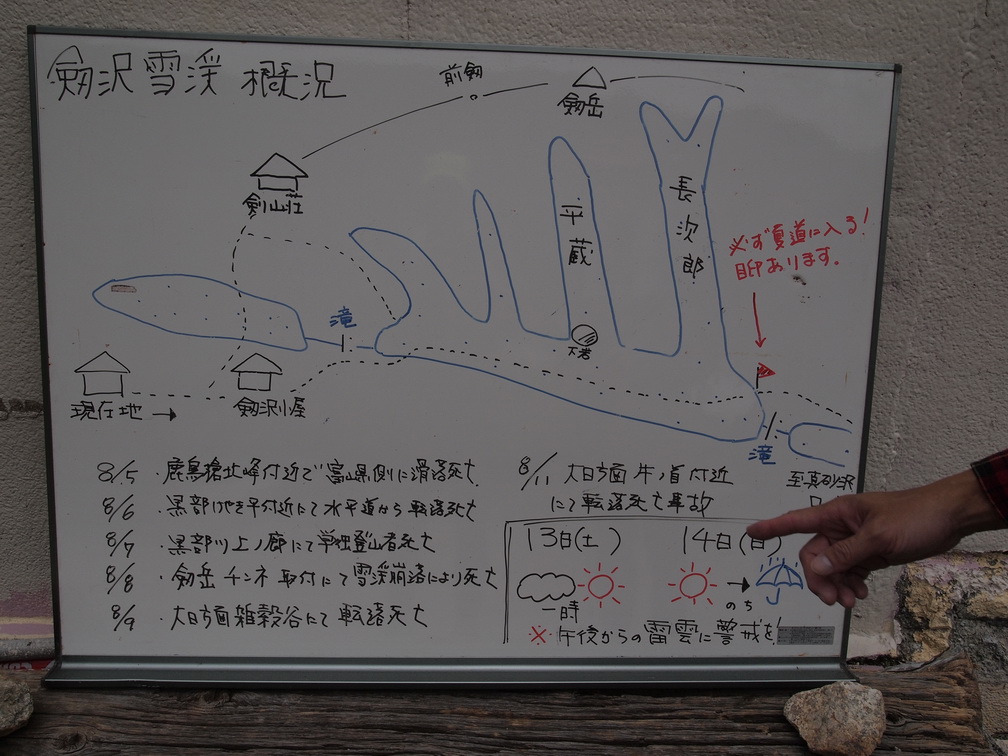 劔沢雪渓 概況
前劔
劔岳
剣山荘
長次郎
平蔵
必ず夏道に入る!
目印あります。
滝
大岩
現在地 →
劔沢小屋
滝
至真砂沢
8/5 ・鹿島槍北峰付近で富山県側に滑落死亡
8/6 ・黒部 付近にて水平道から転落死亡
8/7 ・黒部川上ノ廊にて単独登山者死亡
8/8 ・劔岳チンネ取付にて雪渓崩落により死亡
8/9 ・大日方面雑穀谷にて転落死亡
8/11 大日方面 牛ノ首付近
にて転落死亡事故
13日(土)
14日(日)
一時
のち
※ 午後からの雷雲に警戒を!